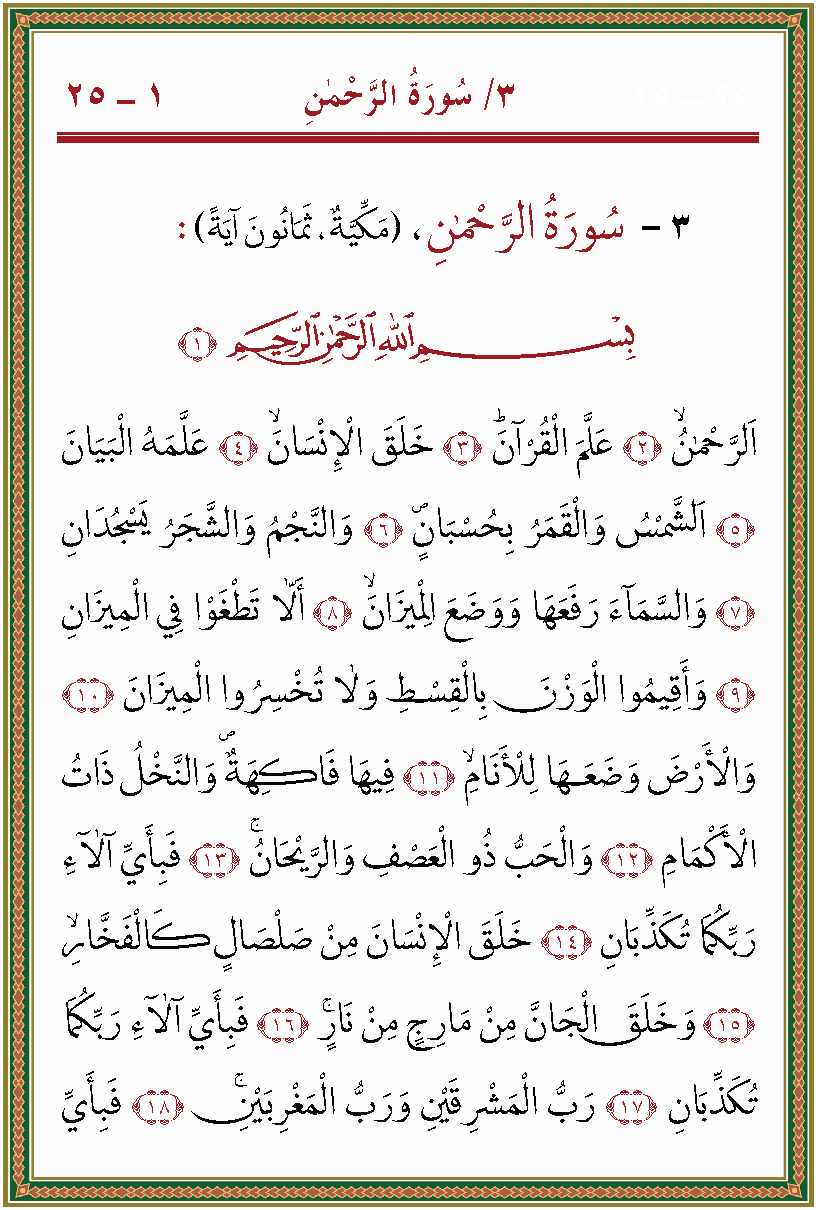 ٣/ سُورَةُ الرَّحْمٰنِ ١ – ٢٥
٢٥ – ٢٥
٣ – سُورَةُ الرَّحْمٰنِ ، (مَكِّيَّةٌ ، ثَمَانُونَ آيَةً) :
بِسْمِ ٱللّٰهِ ٱلرَّحْمٰنِ ٱلرَّحِيمِ ﴿١﴾
اَلرَّحْمٰنُۙ ﴿٢﴾ عَلَّمَ الْقُرْآنَۜ ﴿٣﴾ خَلَقَ الْإِنْسَانَۙ ﴿٤﴾ عَلَّمَهُ الْبَيَانَ
﴿٥﴾ اَلشَّمْسُ وَالْقَمَرُ بِحُسْبَانٍۖ ﴿٦﴾ وَالنَّجْمُ وَالشَّجَرُ يَسْجُدَانِ
﴿٧﴾ وَالسَّمَآءَ رَفَعَهَا وَوَضَعَ الْمِيزَانَۙ ﴿٨﴾ أَلَّا تَطْغَوْا فِي الْمِيزَانِ
﴿٩﴾ وَأَقِيمُوا الْوَزْنَ بِالْقِسْطِ وَلَا تُخْسِرُوا الْمِيزَانَ ﴿١٠﴾
وَالْأَرْضَ وَضَعَهَا لِلْأَنَامِۙ ﴿١١﴾ فِيهَا فَاكِهَةٌۖ وَالنَّخْلُ ذَاتُ
الْأَكْمَامِ ﴿١٢﴾ وَالْحَبُّ ذُو الْعَصْفِ وَالرَّيْحَانُۚ ﴿١٣﴾ فَبِأَيِّ آلَآءِ
رَبِّكُمَا تُكَذِّبَانِ ﴿١٤﴾ خَلَقَ الْإِنْسَانَ مِنْ صَلْصَالٍ كَالْفَخَّارِۙ
﴿١٥﴾ وَخَلَقَ الْجَانَّ مِنْ مَارِجٍ مِنْ نَارٍۚ ﴿١٦﴾ فَبِأَيِّ آلَآءِ رَبِّكُمَا
تُكَذِّبَانِ ﴿١٧﴾ رَبُّ الْمَشْرِقَيْنِ وَرَبُّ الْمَغْرِبَيْنِۚ ﴿١٨﴾ فَبِأَيِّ